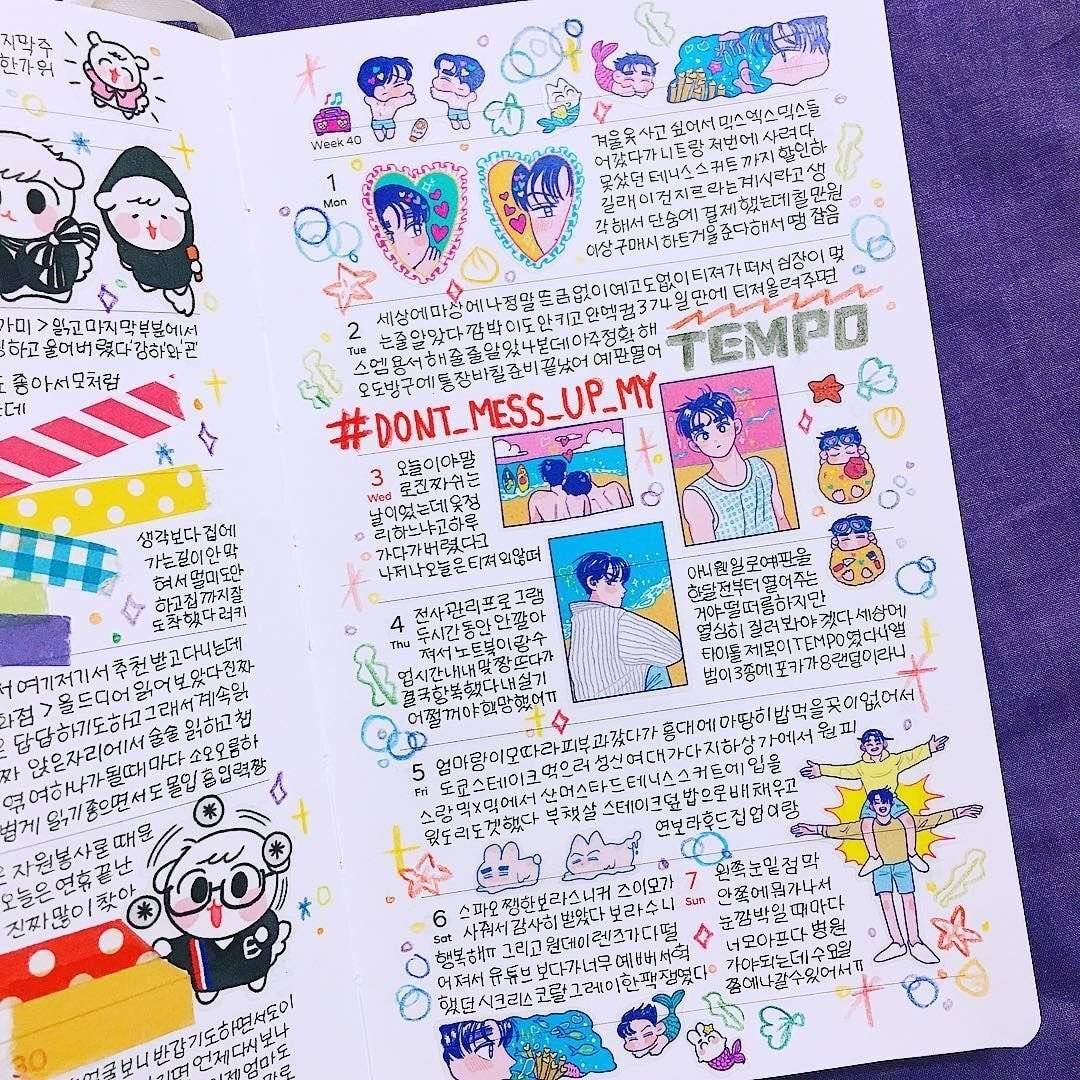 지막주
한가위
가미 > 읽고 마지막 부분에서
하고 울어버렸다 '강하와 관
도 좋아서 모처럼
는데
생각보다 집에
가는 길이 안 막
혀서 멀미도 안
하고 집까지 잘
도착했다 럭키
서 여기저기서 추천 받고 다니는데
화점 > 올드디어 읽어보았다 진짜
은 담담하기도하고 그래서 계속 읽
짜 앉은자리에서 술술 읽하고 챕
엮여 하나가 될때마다 소오오름하
볍게 읽기 좋으면서도 몰입 흡입력짱
은 자원봉사로 때문
오늘은 연휴 끝난
진짜 많이 찾아
E
30
얼굴보니 반갑기도하면서도 이
Week 40
1
Mon
겨울옷 사고 싶어서 믹스엑스믹스들
어갔다가 니트랑 저번에 사려다
못샀던 테니스스커트까지 할인하
길래 이건 지르라는 계시라고 생
각해서 단숨에 결제했는데 칠만원
이상 구매시 하트거울 준다해서 땡잡음
2
Tue
세상에 마상에 나 정말 뜬금없이 예고도 없이 티저가 떠서 심장이 멎
는줄 알았다 깜박이도 안키고 안엑컴 374일만에 티저 올려주면
스엠 용서해줄줄 알았나본데 아주 정확해
오도방구에 통장바칠 준비 끝났어 예판열어
TEMPO
#DONT_MESS_UP_MY
3
Wed
오늘이야말
로 진짜 쉬는
날이었는데 옷정
리하느냐고 하루
가 다 가버렸다그
나저나 오늘은 티저 왜 않떠
4
Thu
전사관리프로그램
두시간동안 안깔아
져서 노트북이랑 수
업시간내내 맞짱뜨다가
결국 항복했다 내 실기
어쩔꺼야 희망했어ㅠ
아니 웬일로 예판을
한달전부터 열어주는
거야 떨떠름하지만
열심히 질러봐야겠다 세상에
타이틀 제목이 TEMPO였다니 앨
범이 3종에 포카가 8랜덤이라니
5
Fri
엄마랑 이모따라 피부과 갔다가 홍대에 마땅히 밥 먹을 곳이 없어서
도쿄스테이크 먹으러 성신여대가다 지하상가에서 원피
스랑 믹x믹에서 산 머스타드 테니스스커트에 입을
윗도리도 겟했다 부채살 스테이크덮밥으로 배채우고
연보라후드집업이랑
6
Sat
스파오 쨍한보라 스니커즈 이모가
사줘서 감사히 받았다 보라수니
행복해ㅠ 그리고 원데이렌즈가 다 떨
어져서 유튜브 보다가 너무 예뻐서 혹
했던 시크리스 코랄 그레이 한팩 쟁였다
7
Sun
왼쪽 눈밑 점막
안쪽에 뭐가 나서
눈 깜박일 때마다
너모 아프다 병원
가야되는데 수요일
쯤에나 갈 수 있어서ㅠ